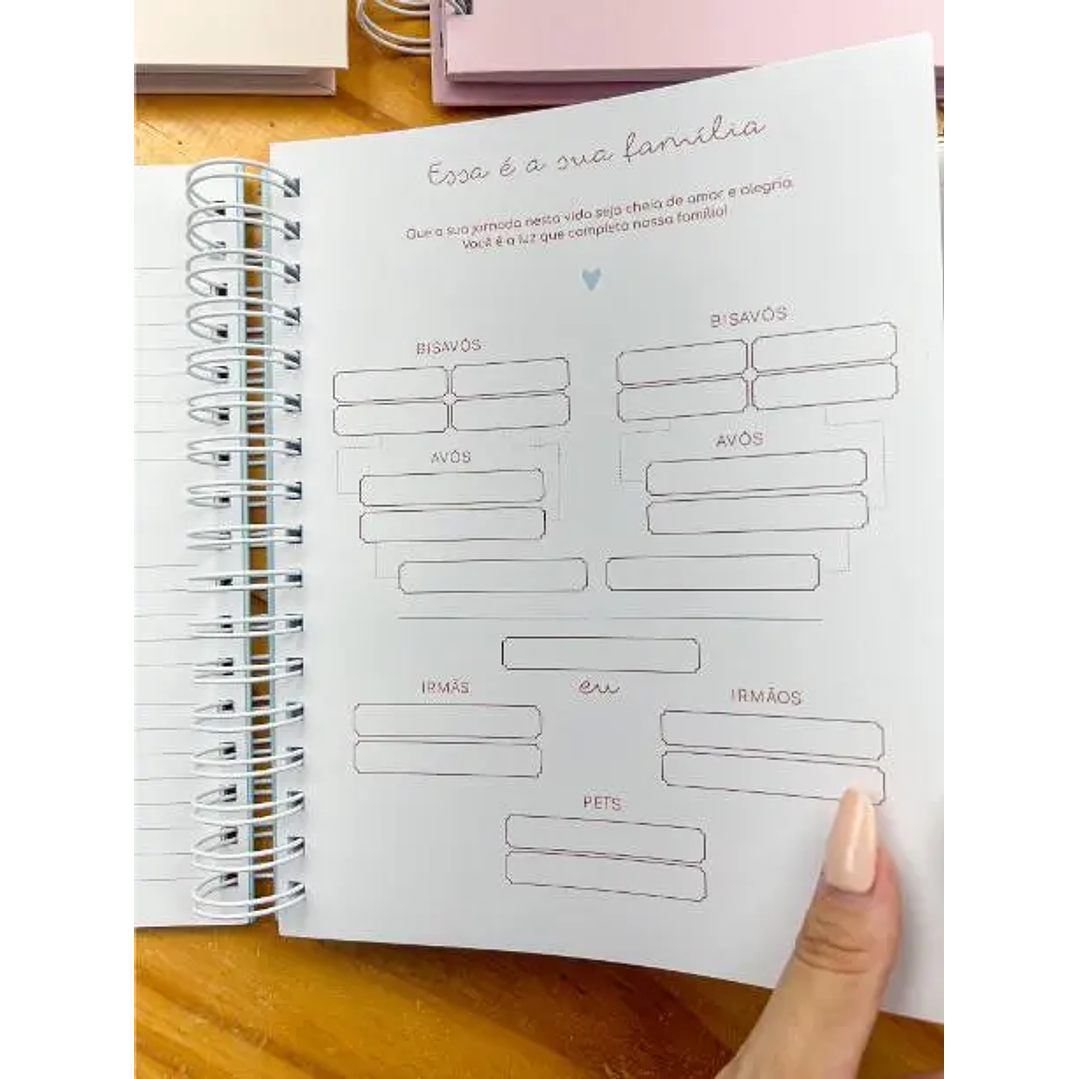 Essa é a sua família
Que a sua jornada nesta vida seja cheia de amor e alegria.
Você é a luz que completa nossa família!
BISAVÓS
BISAVÓS
AVÓS
AVÓS
eu
IRMÃS
IRMÃOS
PETS